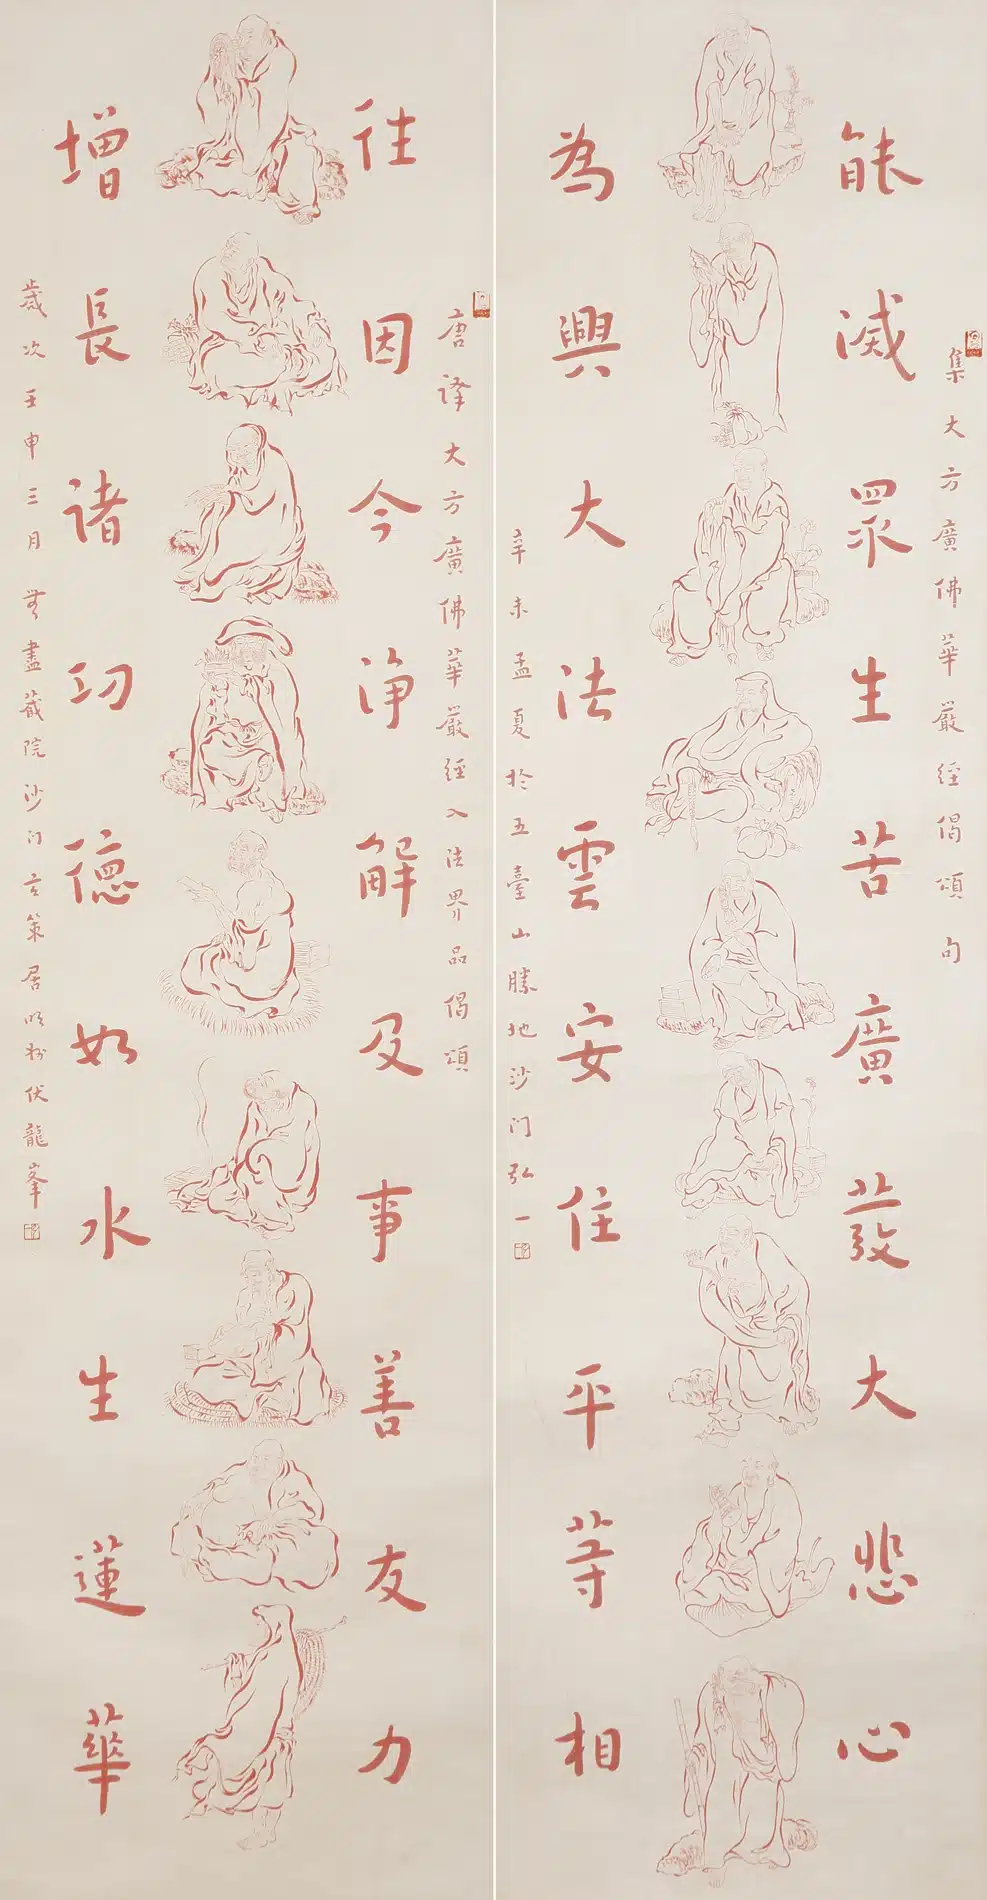 集大方廣佛華嚴經偈頌句
能滅眾生苦廣發大悲心
為興大法雲安住平等相
辛未孟夏於五臺山勝地沙门弘一
唐译大方廣佛華嚴經入法界品偈頌
往因今淨解及事善友力
增長诸功德如水生蓮華
歲次壬申三月無盡藏院沙门策居於伏龍峯